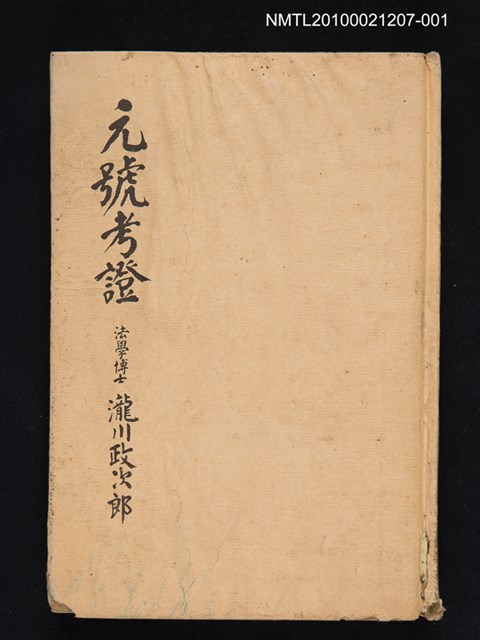 NMTL20100021207-001
元號考證
法學博士 瀧川政次郎